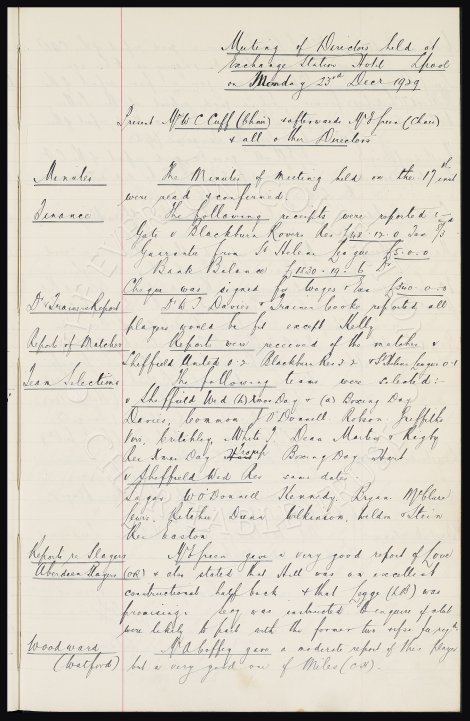 Meeting of Directors held at
Exchange Station Hotel L'pool
on Monday 23rd Decr 1929
Present Mr W C Cuff (Chair) & afterwards Mr E Green (Chair)
& all other Directors
Minutes
The Minutes of Meeting held on the 17th inst
were read & confirmed.
Finance
The following receipts were reported :-
Gate v Blackburn Rovers Res £48-12-0 Tax 5/3d
Guarantee from St Helens League £5-0-0
Bank Balance £1830-19-6 Dr
Cheque was signed for Wages & Tax £340-0-0
Dr & Trainers Report
Dr & J Davies & Trainer Cooke reported all
players would be fit except Kelly
Reports of Matches
Report were received of the matches v
Sheffield United 0-2 Blackburn Res 2-2 & St Helens League 0-1
Team Selections
The following teams were selected :-
v Sheffield Wed (h) Xmas Day & (a) Boxing Day
Davies, Common J O'Donnell Robson Griffiths
Voss, Critchley, White T Dean Martin & Rigby
Res Xmas Day Troup Boxing Day Hart
v Sheffield Wed Res same dates.
Sagar W O'Donnell Kennedy Bryan McClure
Lewis. Ritchie Dunn Wilkinson, Weldon & Stein
Res Easton
Reports re Players
Aberdeen Players
Mr Green gave a very good report of Love
(OR) & also stated that Hill was an excellent
constructional half back & that Legge (CH) was
promising. Secy was instructed to enquire if at all
were likely to part with the former two
Woodward
(Watford)
Mr A Coffey gave a moderate report of this player
but a very good one of Miles (OR).